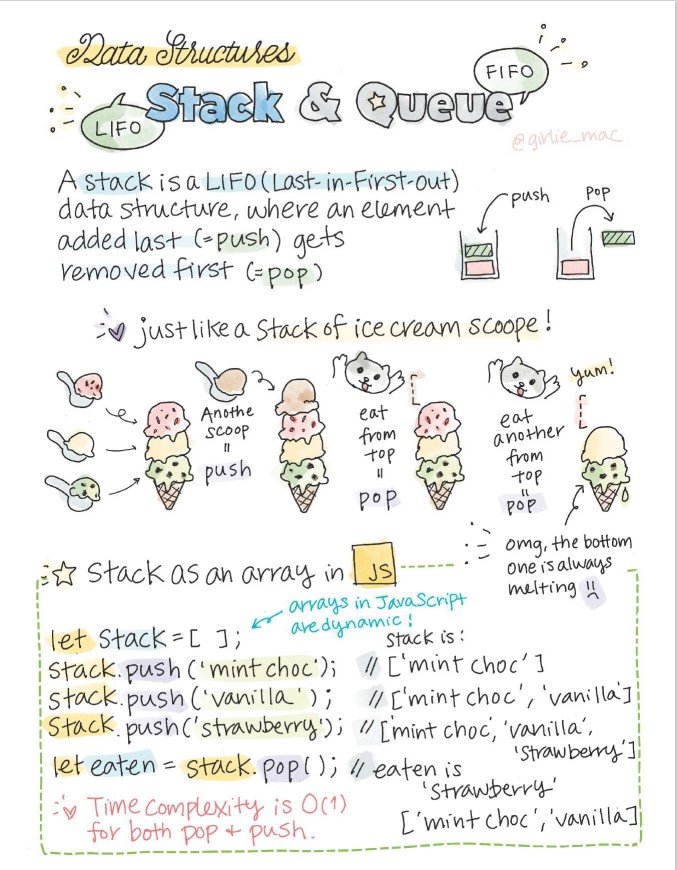 Data Structures
LIFO
Stack & Queue
FIFO
@girlie_mac
A stack is a LIFO (Last-in-First-out)
data structure, where an element
added last (=push) gets
removed first (=pop)
push
pop
just like a stack of ice cream scoope!
Anothe
scoop
=
push
eat
from
top
=
pop
eat
another
from
top
=
pop
yum!
omg, the bottom
one is always
melting
Stack as an array in JS
arrays in JavaScript
are dynamic!
let Stack = [ ];
stack is:
stack.push ('mint choc'); // ['mint choc']
stack.push ('vanilla'); // ['mint choc', 'vanilla']
Stack.push('strawberry'); // ['mint choc', 'vanilla',
'strawberry']
let eaten = stack.pop(); // eaten is
'strawberry'
['mint choc', 'vanilla]
Time complexity is O(1)
for both pop + push.